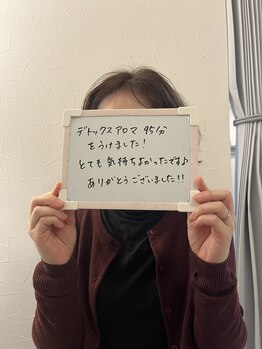 デトックスアロマ 95分
をうけました!
とても気持ちよかったです♪
ありがとうございました!!